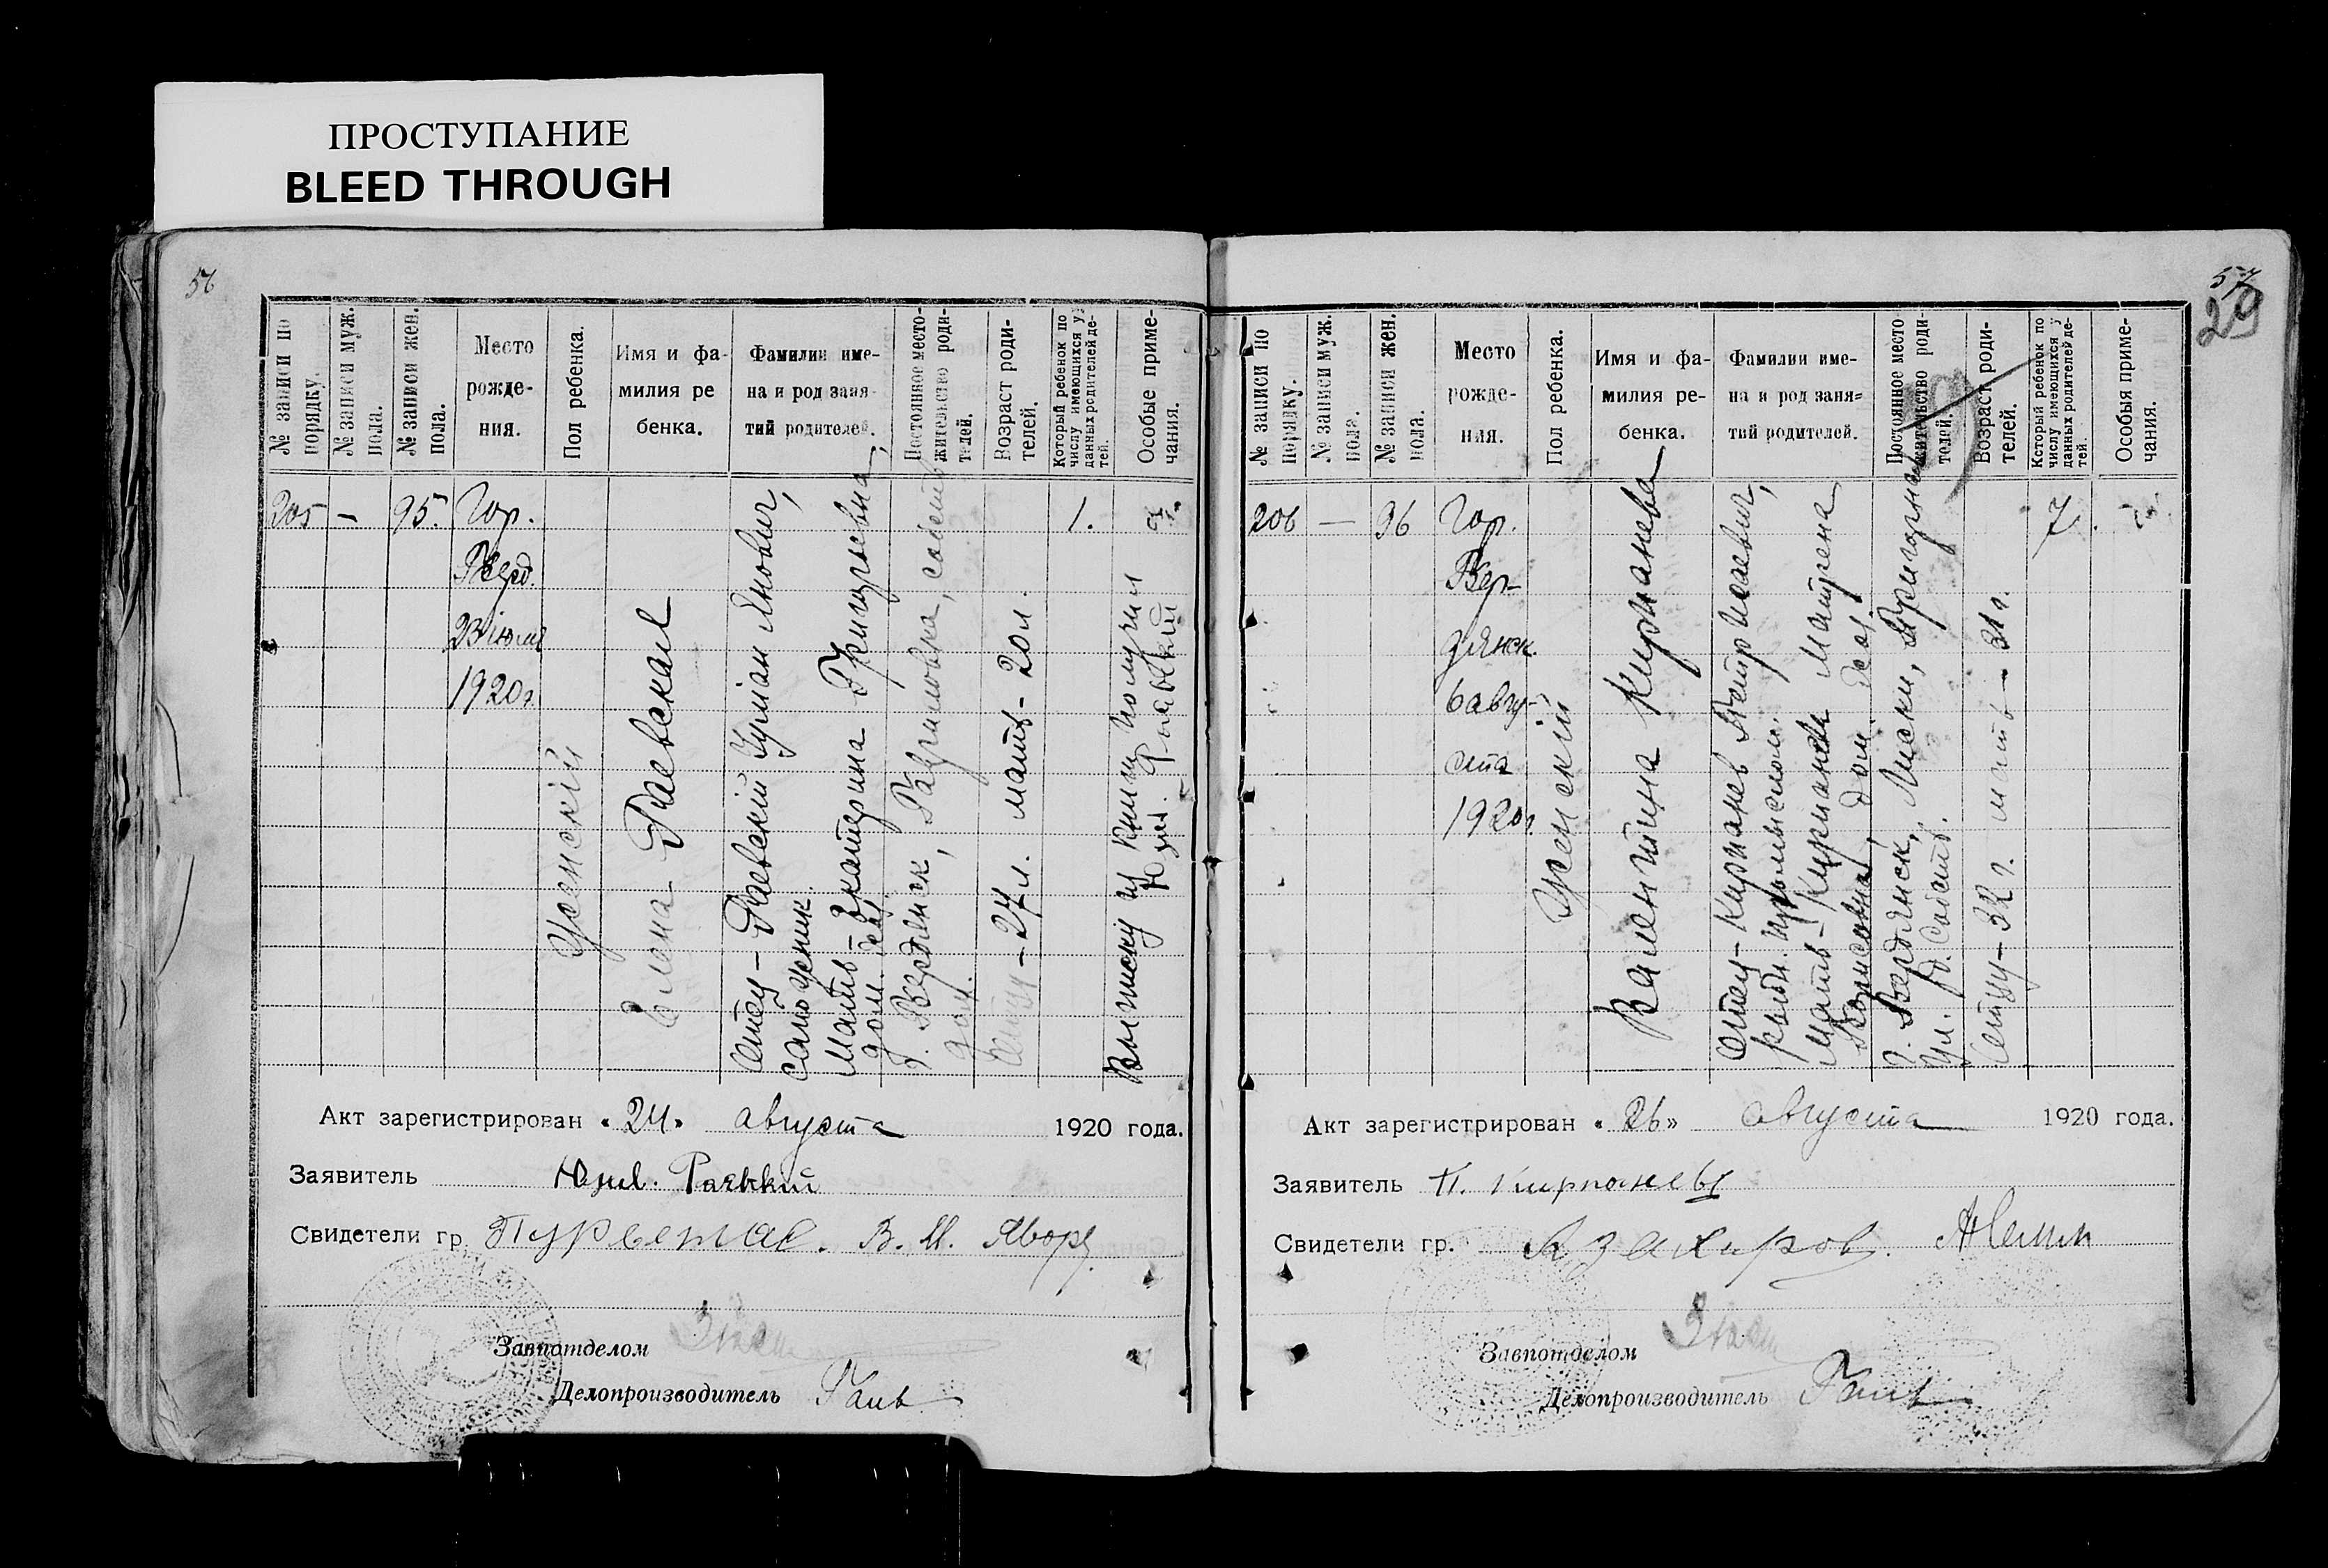 ПРОСТУПАНИЕ
BLEED THROUGH
56
№ записи по
порядку.
№ записи муж.
пола.
№ записи жен.
пола.
Место
рожде-
ния.
Пол ребенка.
Имя и фа-
милия ре
бенка.
Фамилии име-
на и род заня-
тий родителей.
Постоянное место-
жительство роди-
телей.
Возраст роди-
телей.
Который ребенок по
числу имеющихся у
данных родителей де-
тей.
Особые приме-
чания.
205
—
95.
Гор.
Берд.
23 июля
1920 г.
Женскій
Елена Раевская
Отец — Раевскій Юліан Янович,
сапожник.
Мать Екатерина Григорьевна,
дом. хоз.
г. Бердянск, собств
дом.
Отцу — 27 л. мать — 20 л.
1.
Выписку из книги получил
Юл.
Акт зарегистрирован «24» августа 1920 года.
Заявитель Юлиан Раевский
Свидетели гр. В. М.
Завпотделом
Делопроизводитель
57
29
№ записи по
порядку.
№ записи муж.
пола.
№ записи жен.
пола.
Место
рожде-
ния.
Пол ребенка.
Имя и фа-
милия ре-
бенка.
Фамилии име-
на и род заня-
тий родителей.
Постоянное место
жительство роди-
телей.
Возраст роди-
телей.
Который ребенок по
числу имеющихся у
данных родителей де-
тей.
Особыя приме-
чания.
206
—
96
Гор.
Бер-
дянск
6 авгу-
ста
1920 г
Женскій
Валентина Кирпанева
Отец — Кирпанев Петр Исаевич,
рыбн. промыслом.
Мать — Кирпанева Матрена
Борисовна, дом. хоз.
г. Бердянск, Лиски, Пригорная
ул. д. собств.
Отцу — 32 г. мать — 31 г.
7.
Акт зарегистрирован «26» августа 1920 года.
Заявитель П. Кирпаневы
Свидетели гр.
Завпотделом
Делопроизводитель